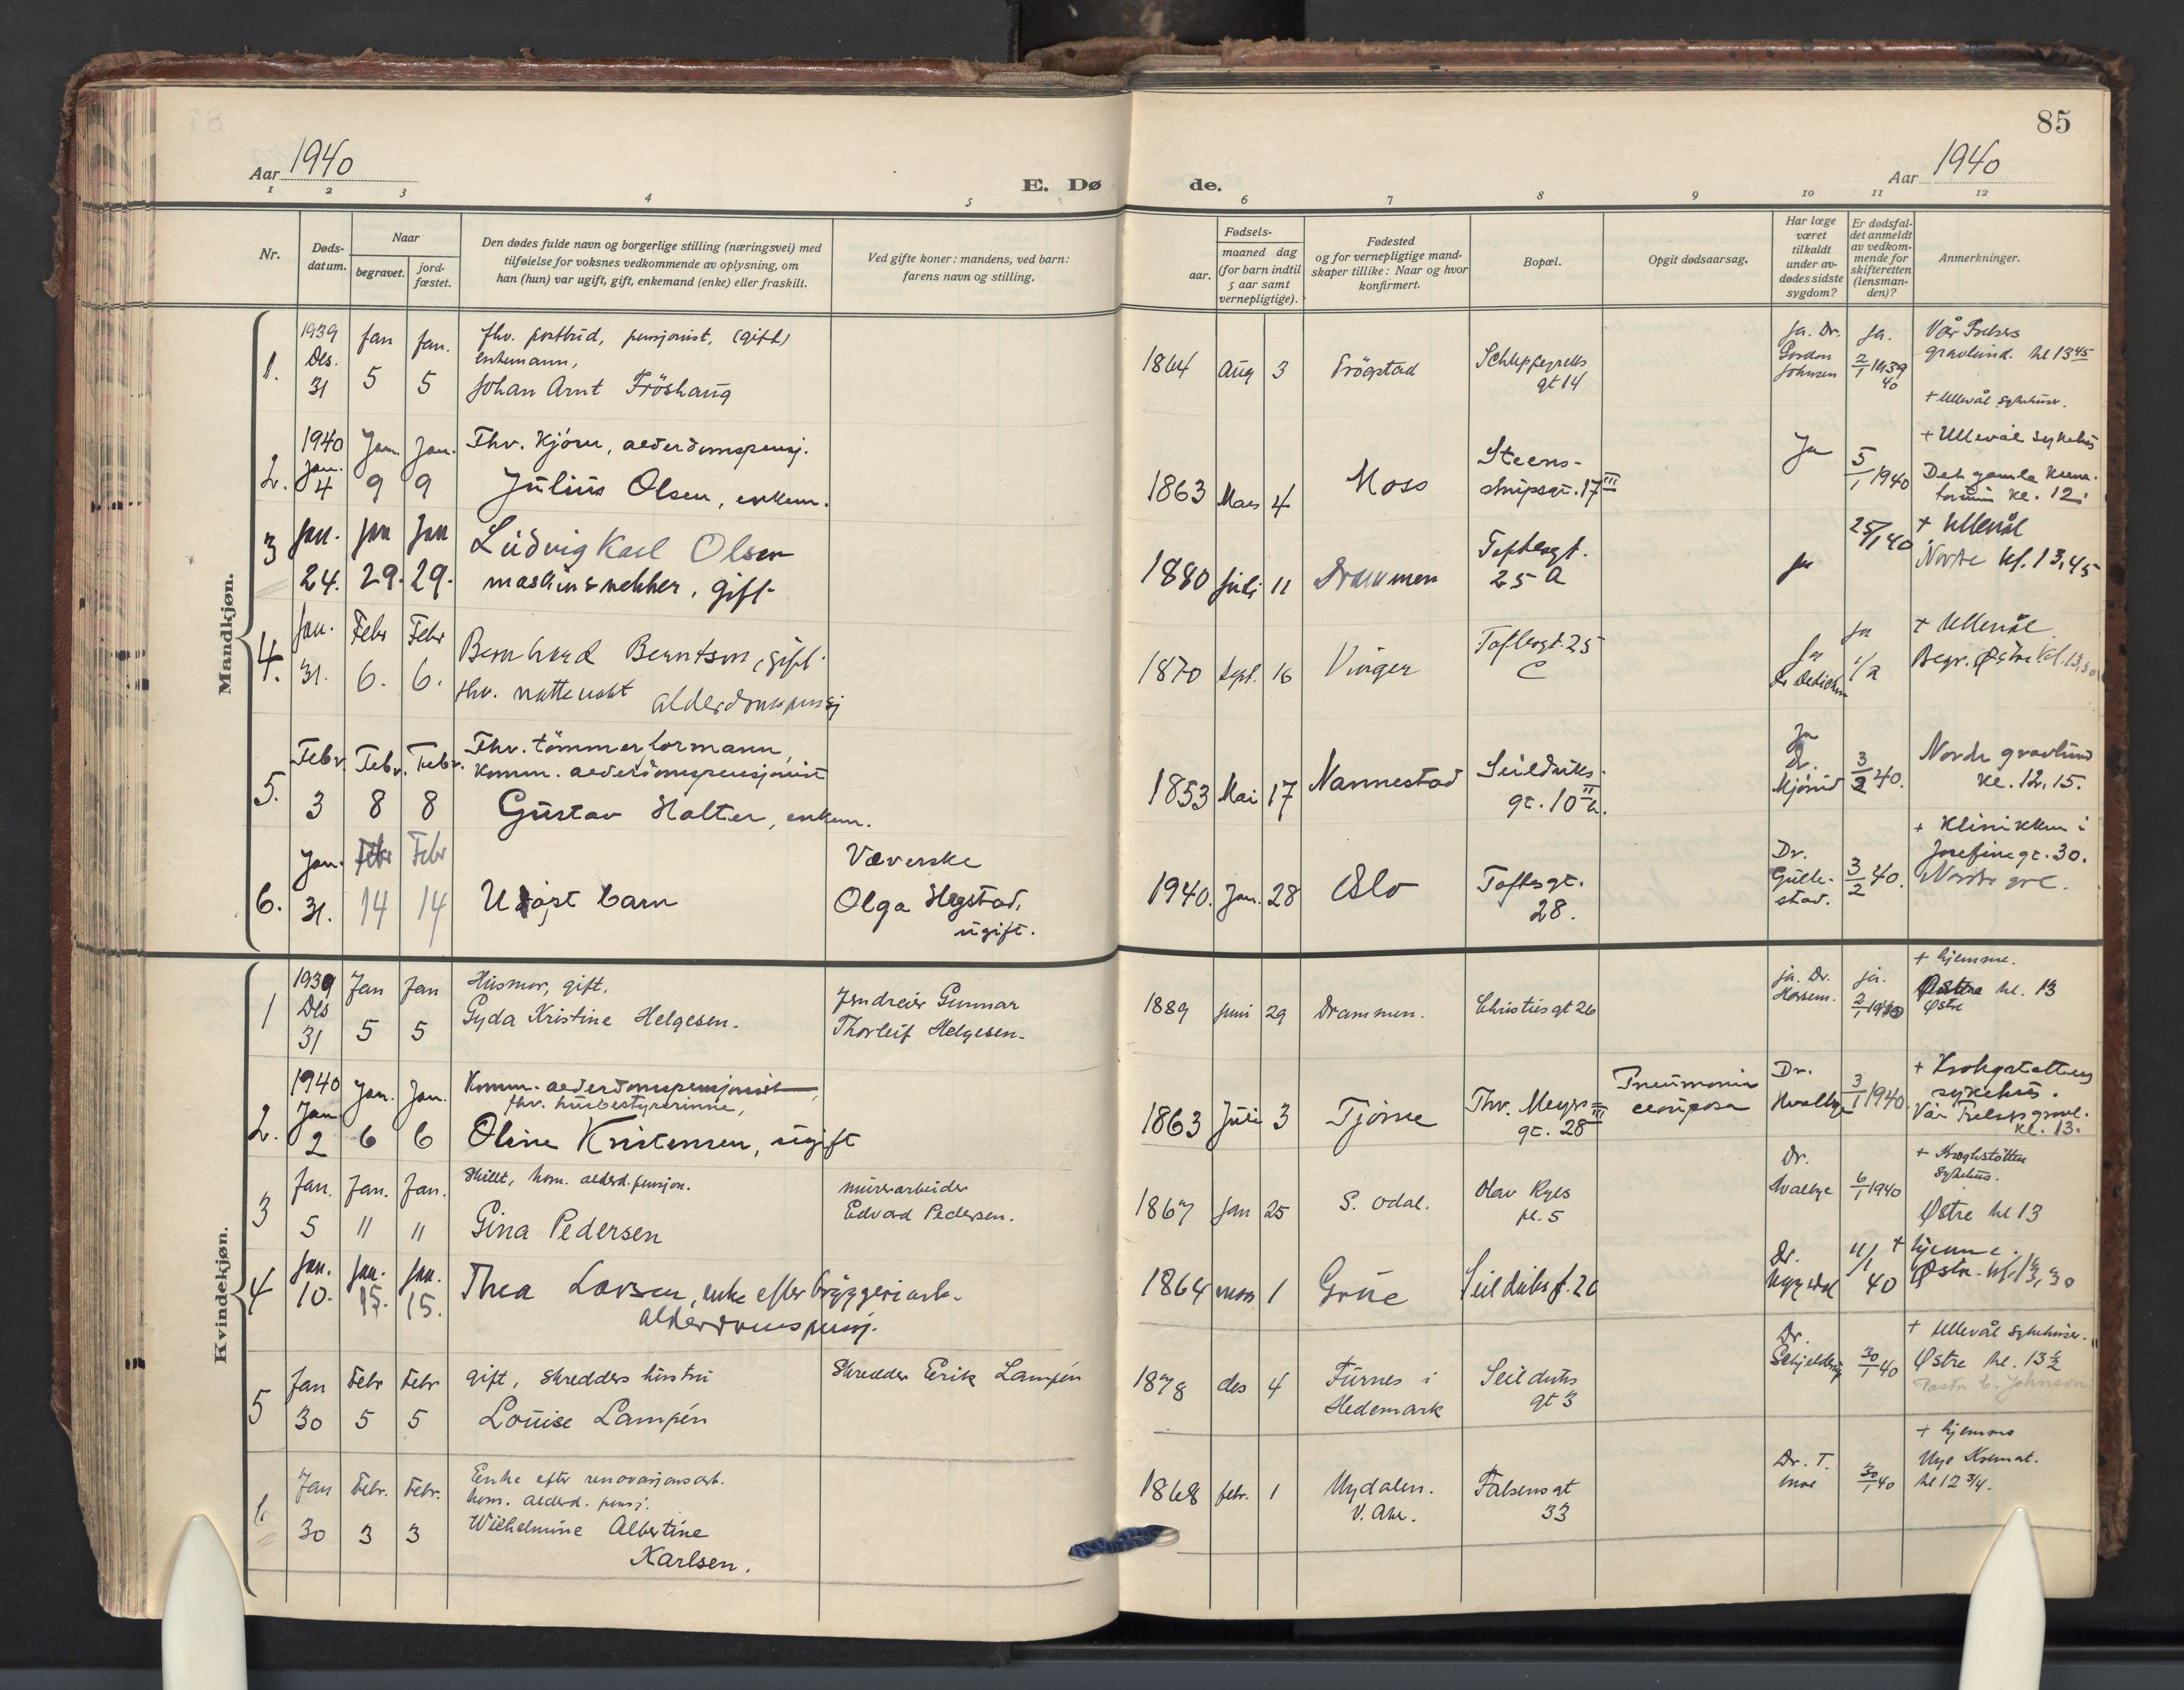 85
Aar 1940
E. Dø
de.
Aar 1940
1 2 3 4 5
6 7 8 9 10 11 12
Nr.
Døds-
datum.
Naar
begravet.
jord-
fæstet.
Den dødes fulde navn og borgerlige stilling (næringsvei) med
tilføielse for voksnes vedkommende av oplysning, om
han (hun) var ugift, gift, enkemand (enke) eller fraskilt.
Ved gifte koner: mandens, ved barn:
farens navn og stilling.
Fødsels-
aar.
maaned dag
(for barn indtil
5 aar samt
vernepligtige).
Fødested
og for vernepligtige mand-
skaper tillike: Naar og hvor
konfirmert.
Bopæl.
Opgit dødsaarsag.
Har læge
været
tilkaldt
under av-
dødes sidste
sygdom?
Er dødsfal-
det anmeldt
av vedkom-
mende for
skifteretten
(lensman-
den)?
Anmerkninger.
Mandkjøn.
1.
1939
Des.
31
Jan
5
Jan.
5
fhv. postbud, pensjonist, (gift)
enkemann,
Johan Arnt Fröshaug
1864 Aug 3
Schleppegrells
gt 14
Ja. Dr.
Gordon
Johnsen
Ja.
2/1 1939
40
Vår Frelsers
gravlund. kl 13 45
+ Ullevål sykehus.
2.
1940
Jan.
4
Jan.
9
Jan.
9
Fhv. kjörer, alderdomspensj.
Julius Olsen, enkem.
1863 Mars 4
Moss
Steens-
strupsgt. 17 III
Ja
5/1 1940
+ Ullevål sykehus
Det gamle krema-
torium kl. 12
3
Jan.
24.
Jan
29.
Jan
29.
Ludvig Karl Olsen
maskinsnekker, gift
1880 Juli 11
Drammen
Toftesgt.
25 A
Ja
25/1 40
+ Ullevål
Nordre kl. 13,45
4.
Jan.
31.
Febr
6.
Febr
6.
Bernhard Berntsen, gift
fhv. nattevakt alderdomspensj
1870 Sept. 16
Vinger
Toftesgt. 25
C
Ja
Dr Dedichen
Ja
1/2
+ Ullevål
Begr. Østre kl. 13,30
5.
Febr.
3
Febr.
8
Febr.
8
Fhv. tömmerformann,
Komm. alderdomspensjonist
Gustav Holter, enkem.
1853 Mai 17
Nannestad
Seilduks-
gt. 10 II
Ja
Dr.
3/2 40.
Nordre gravlund
kl. 12,15.
6.
Jan.
31.
Febr
14
Febr
14
Udöpt barn
Væverske
Olga Hegstad,
ugift.
1940. Jan. 28
Oslo
Toftesgt.
28.
Dr.
Gulle-
stad.
3/2 40.
+ Klinikken i
Josefinegt. 30.
Nordre grl.
Kvindekjøn.
1
1939
Des
31
Jan
5
Jan
5
Husmor, gift.
Gyda Kristine Helgesen.
Jerndreier Gunnar
Thorleif Helgesen.
1889 juni 29
Drammen.
Christiesgt 26
ja. Dr.
ja.
2/1 1940
+ hjemme.
kl. 13
Østre
2.
1940
Jan
2
Jan.
6
Jan.
6
Komm. alderdomspensjonist,
fhv. husbestyrerinne,
Oline Kristensen, ugift
1863 Juli 3
Tjöme
Thv. Meyers
gt. 28 III
Pneumonia
Dr.
Hvalbye
3/1 1940.
+ Krohgstøttens
sykehus.
Vår Frelsers gravl.
kl. 13.
3
Jan.
5
Jan.
11
Jan.
11
Skillt, kom. alderd. pensjon.
Gina Pedersen
murerarbeider
Edvard Pedersen.
1867 Jan 25
S. Odal.
Olav Ryes
pl. 5
Dr.
Hvalbye
6/1 1940
+ Kroghstötten
sykehus.
Østre kl 13
4
Jan.
10.
Jan.
15.
Jan.
15.
Thea Larsen, enke efter bryggeriarb.
alderdomspensj.
1864 mars 1
Grue
Seilduksg. 20
Dr.
11/1
40
+ hjemme.
Østre kl. 13,30
5
Jan
30
Febr
5
Febr
5
gift, skredders hustru
Louise Lampén
Skredder Erik Lampén
1878 des 4
Furnes i
Hedemark
Seilduks
gt 3
Dr.
Schjelderup
30/1 40
+ Ullevål sykehus.
Østre kl. 13 1/2
Pastor C. Johnson
6
Jan
30
Febr.
3
Febr.
3
Enke efter renovasjonsarb.
kom. alderd. pensj.
Wilhelmine Albertine
Karlsen.
1868 febr. 1
Nydalen.
V. Aker.
Falsensgt
33
Dr. T.
Moe
30/1 40
+ hjemme
Nye Kremat.
kl 12 3/4.